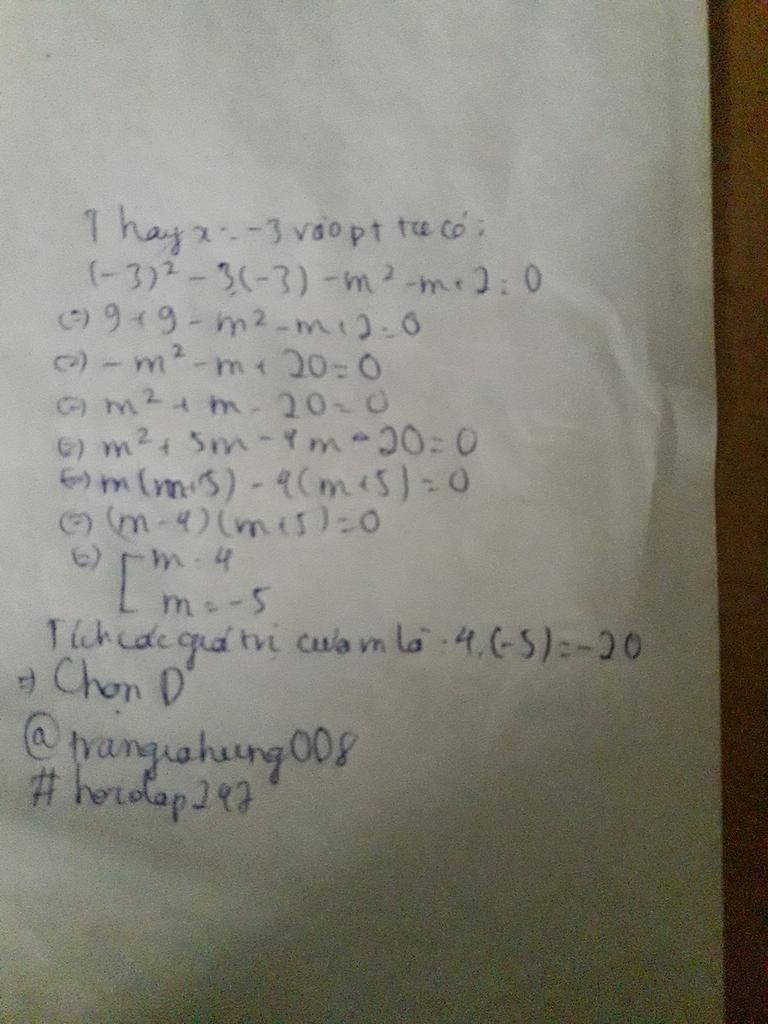 Thay x = -3 vào pt ta có:
(-3)² - 3(-3) - m² - m + 2 = 0
(=) 9 + 9 - m² - m + 2 = 0
(=) - m² - m + 20 = 0
(=) m² + m - 20 = 0
(=) m² + 5m - 4m - 20 = 0
(=) m(m+5) - 4(m+5) = 0
(=) (m-4)(m+5) = 0
(=) [ m = 4
m = -5
Tích các giá trị của m là: 4.(-5) = -20
=> Chọn D
@trangiahung008
#hoidap247